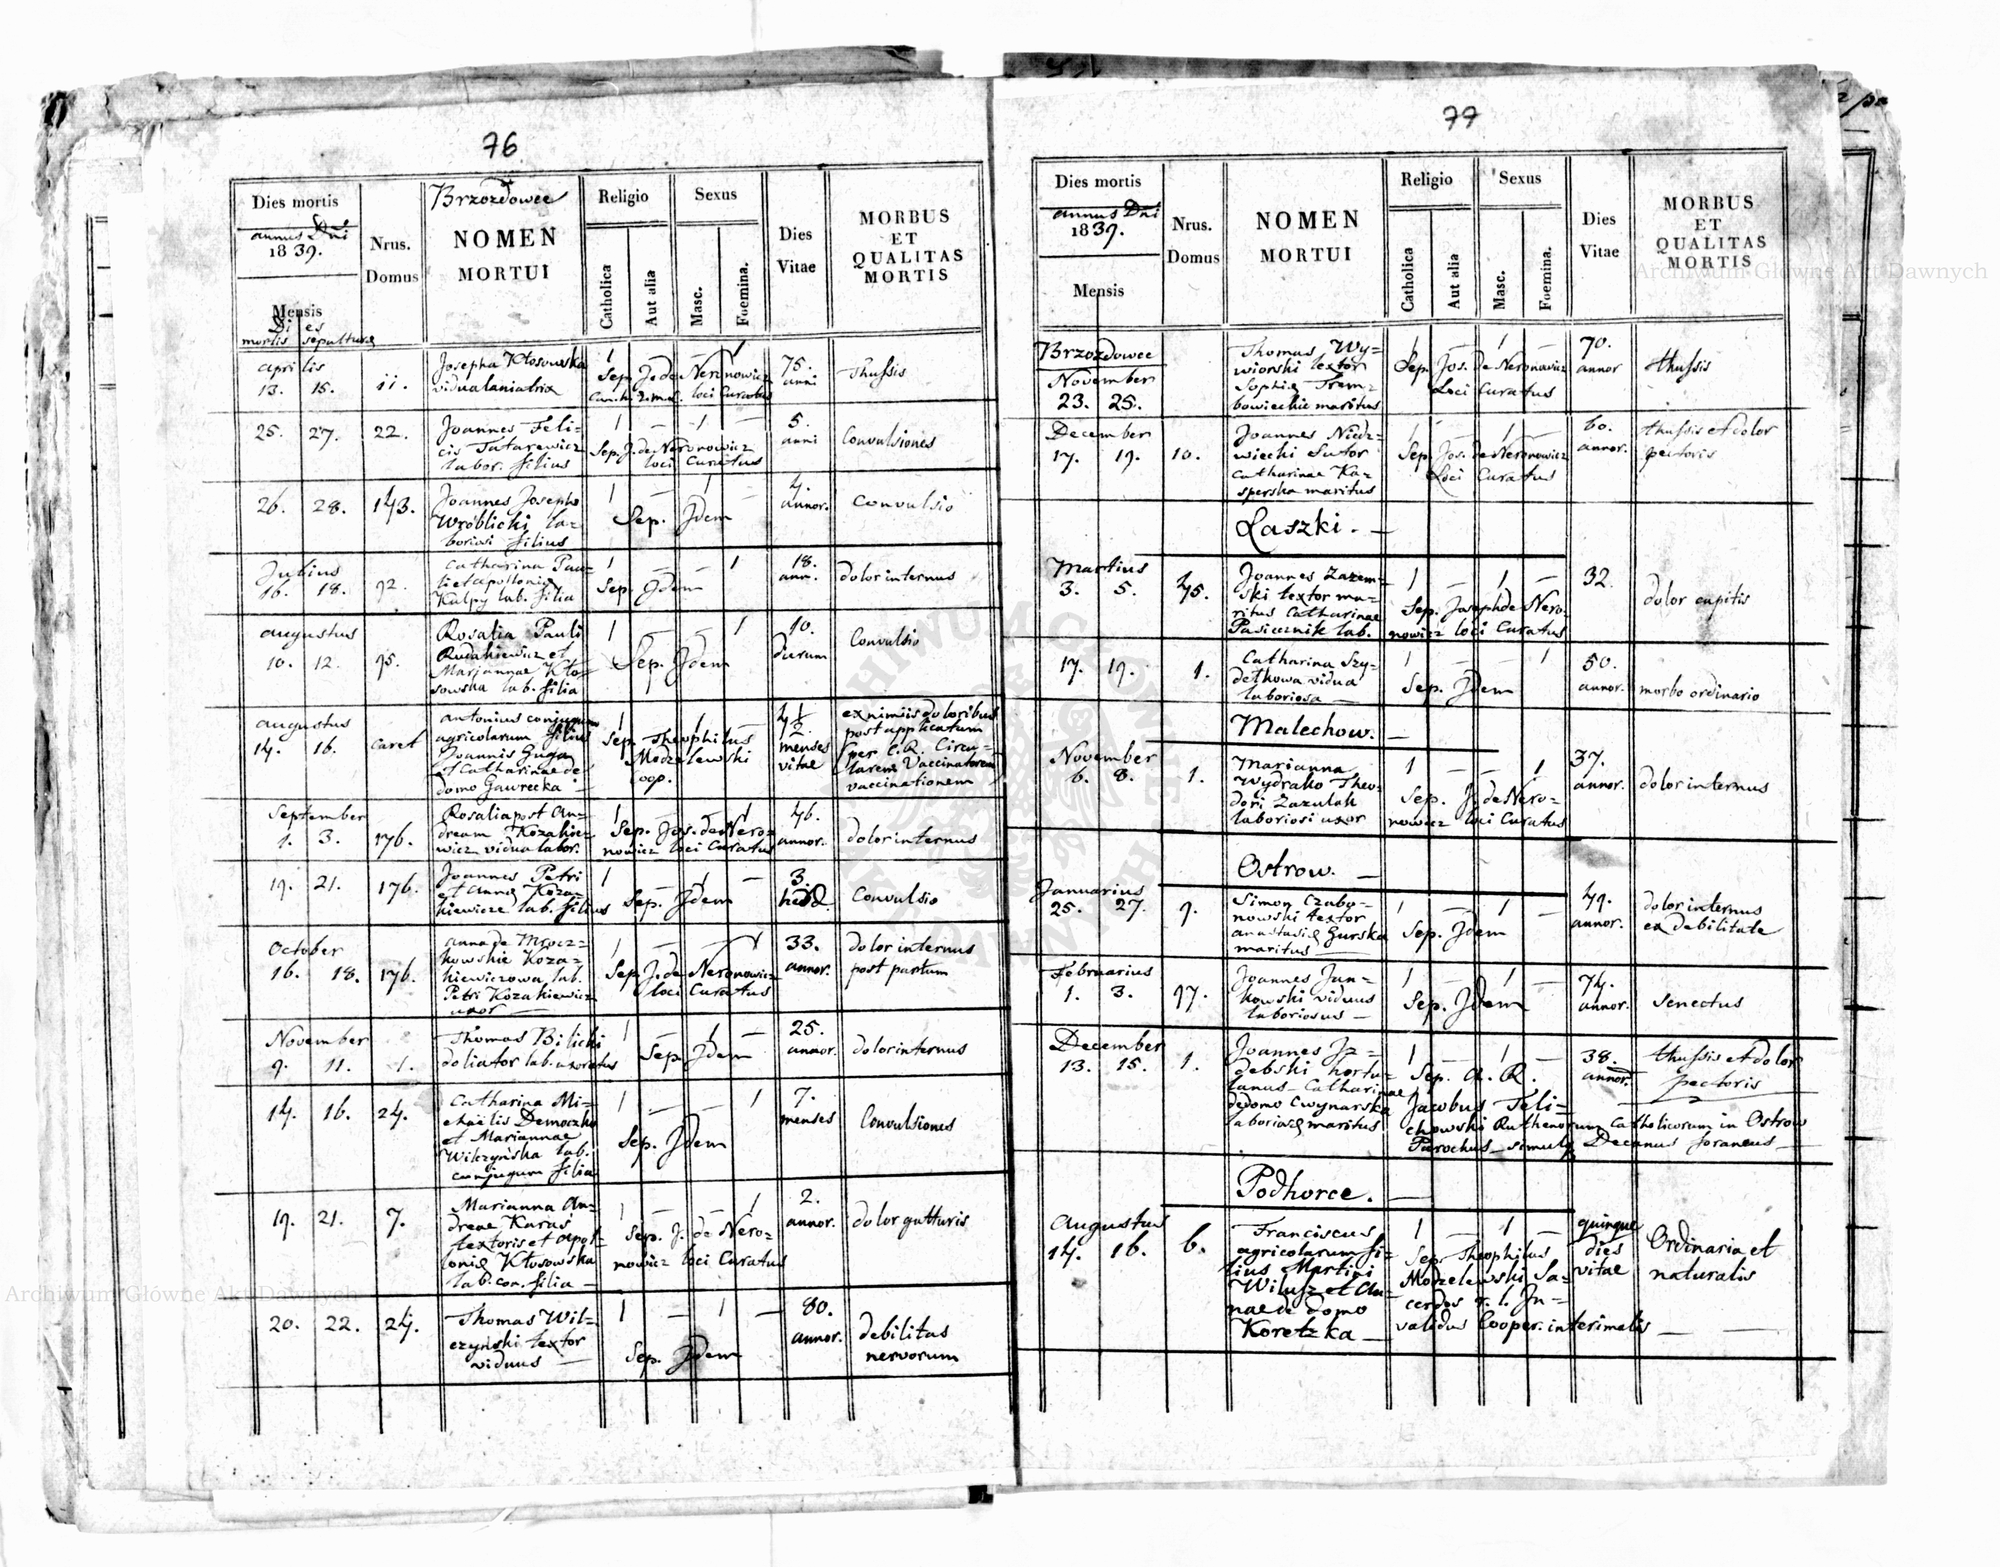 76
Dies mortis
annus Dni
1839.
Mensis
Di es
mortis sepulturae
Nrus.
Domus
Brzozdowce
NOMEN
MORTUI
Religio
Catholica
Aut alia
Sexus
Masc.
Foemina.
Dies
Vitae
MORBUS
ET
QUALITAS
MORTIS
Aprilis
13. 15.
11.
Josepha Kłosowska
vidua laniatrix
1 — — 1
Sep. J. de Neronowicz
loci Curatus
75.
anni
Thussis
25. 27.
22.
Joannes Feli=
cis Tatarewicz
labor. filius
1 — 1 —
Sep. J. de Neronowicz
loci Curatus
5.
anni
Convulsiones
26. 28.
143.
Joannes Josephi
Wróblicki la=
boriosi filius
1 — 1 —
Sep. Idem
4.
annor.
Convulsio
Julius
16. 18.
92.
Catharina Pau=
li et Apolloniae
Kalpy lab. filia
1 — — 1
Sep. Idem
18.
ann.
dolor internus
Augustus
10. 12.
95.
Rosalia Pauli
Rudakiewicz et
Mariannae Kło=
sowska lab. filia
1 — — 1
Sep. Idem
10.
dierum
Convulsio
Augustus
14. 16.
caret
Antonius conjugum
agricolarum filius
Joannis Guga
et Catharinae de
domo Gawrecka —
1 — 1 —
Sep. Theophilus
Modzelewski
Coop.
4 1/2
menses
vitae
ex nimiis doloribus
post applicatam
per C. R. Circu=
larem Vaccinatorem
vaccinationem
September
1. 3.
176.
Rosalia post An=
dream Kozakie=
wicz vidua labor.
1 — — 1
Sep. Jos. de Nero=
nowicz loci Curatus
46.
annor.
dolor internus
19. 21.
176.
Joannes Petri
et Annae Koza=
kiewicze lab. filius
1 — 1 —
Sep. Idem
3.
hebd.
Convulsio
October
16. 18.
176.
Anna de Mrocz=
kowskie Koza=
kiewiczowa lab.
Petri Kozakiewicz
uxor —
1 — — 1
Sep. J. de Neronowicz
loci Curatus
33.
annor.
dolor internus
post partum
November
9. 11.
1.
Thomas Bilicki
doliator lab. uxoratus
1 — 1 —
Sep. Idem
25.
annor.
dolor internus
14. 16.
24.
Catharina Mi=
chaëlis Democzko
et Mariannae
Wilczyńska lab.
conjugum filia
1 — — 1
Sep. Idem
7.
menses
Convulsiones
19. 21.
7.
Marianna An=
dreae Karas
textoris et Apol=
loniae Kłosowska
lab. con. filia —
1 — — 1
Sep. J. de Nero=
nowicz loci Curatus
2.
annor.
dolor gutturis
20. 22.
24.
Thomas Wil=
czyński textor
viduus —
1 — 1 —
Sep. Idem
80.
annor.
debilitas
nervorum
77
Dies mortis
annus Dni
1839.
Mensis
Nrus.
Domus
NOMEN
MORTUI
Religio
Catholica
Aut alia
Sexus
Masc.
Foemina.
Dies
Vitae
MORBUS
ET
QUALITAS
MORTIS
Brzozdowce
November
23. 25.
Thomas Wy=
wiorski textor
Sophiae Trem=
bowieckie maritus
1 — 1 —
Sep. Jos. de Neronowicz
Loci Curatus
70.
annor
thussis
December
17. 19.
10.
Joannes Niedz=
wiecki Sutor
Catharinae Ka=
sperska maritus
1 — 1 —
Sep. Jos. de Neronowicz
Loci Curatus
60.
annor.
thussis et dolor
pectoris
Laszki. —
Martius
3. 5.
45.
Joannes Zazem=
ski textor ma=
ritus Catharinae
Pasicznik lab.
1 — 1 —
Sep. Joseph de Nero=
nowicz loci Curatus
32.
dolor capitis
17. 19.
1.
Catharina Szy=
detkowa vidua
laboriosa —
1 — — 1
Sep. Idem
50.
annor.
morbo ordinario
Malechow. —
November
6. 8.
1.
Marianna
Wydrako Theo=
dori Zazulak
laboriosi uxor
1 — — 1
Sep. J. de Nero=
nowicz loci Curatus
37.
annor.
dolor internus
Ostrow. —
Januarius
25. 27.
9.
Simon Czabo=
nowski textor
Anastasiae Gurska
maritus —
1 — 1 —
Sep. Idem
49.
annor.
dolor internus
ex debilitate
Februarius
1. 3.
97.
Joannes Jan=
kowski viduus
laboriosus —
1 — 1 —
Sep. Idem
74.
annor.
Senectus
December
13. 15.
1.
Joannes Iz=
debski hortu=
lanus Catharinae
de domo Cwynarska
laboriosae maritus
1 — 1 —
Sep. A. R.
Jacobus Teli=
chowski Ruthenorum Catholicorum in Ostrow
Parochus simulq Decanus foraneus —
38.
annor.
thussis et dolor
pectoris
Podhorce. —
Augustus
14. 16.
6.
Franciscus
agricolarum fi=
lius Martini
Wilusz et An=
nae de domo
Koretzka —
1 — 1 —
Sep. Theophilus
Modzelewski Sa=
cerdos r. l. In=
validus Cooper. interimalis —
quinque
dies
vitae
Ordinaria et
naturalis
Archiwum Główne Akt Dawnych
Archiwum Główne Akt Dawnych